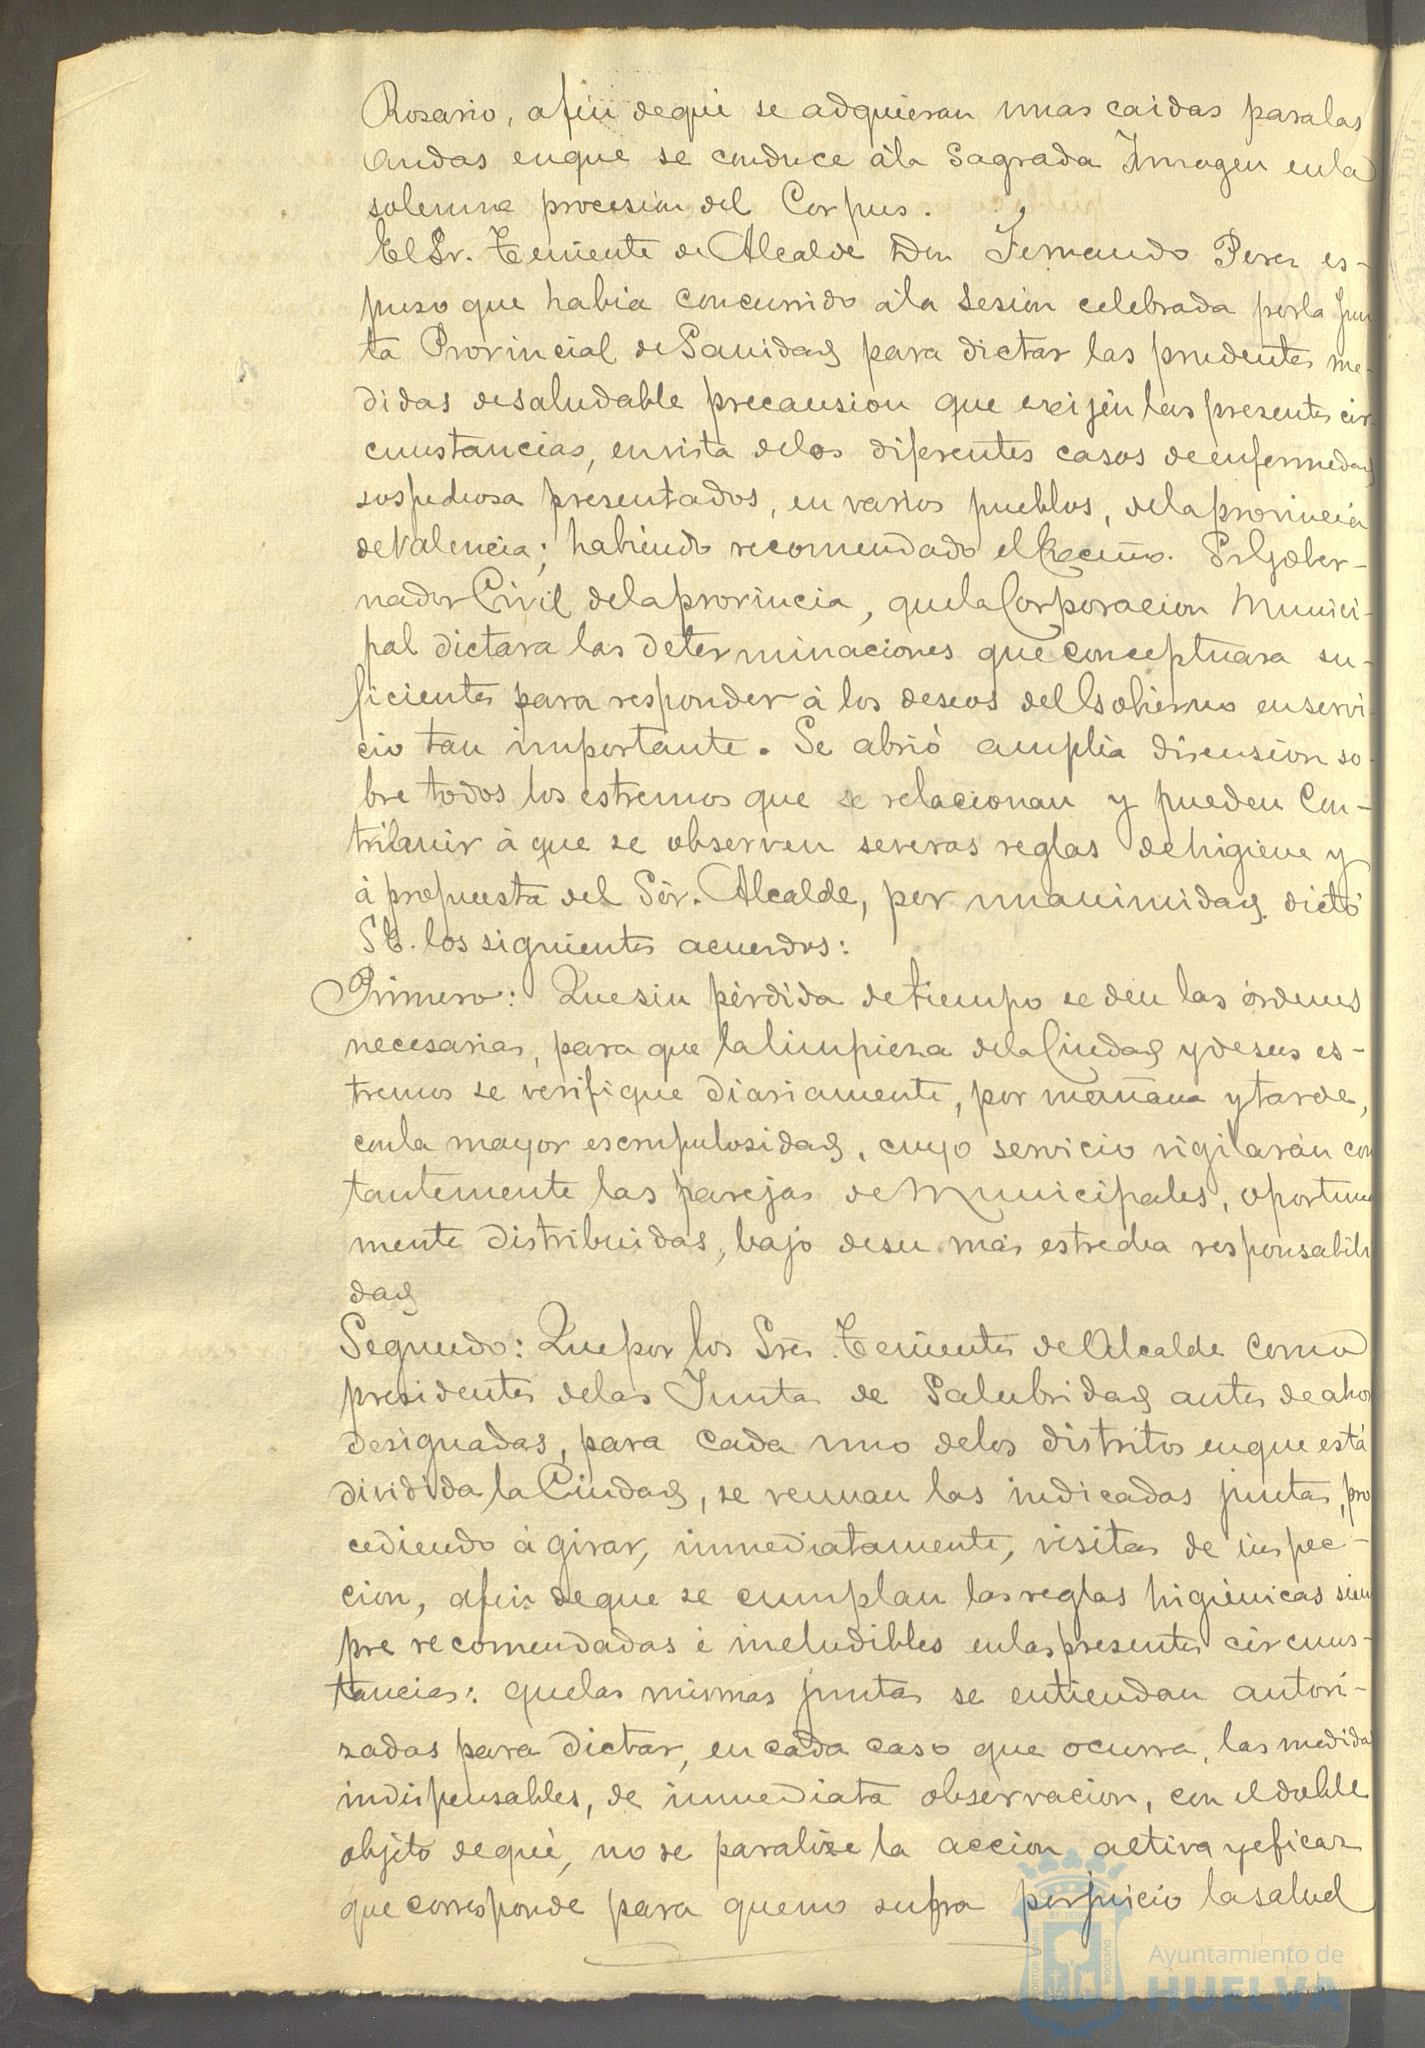 Rosario, afin de que se adquieran unas caidas para las
andas en que se conduce á la Sagrada Imagen en la
solemne procesion del Corpus.
El Sr. Teniente de Alcalde Don Fernando Perez es-
puso que habia concurrido á la Sesion celebrada por la Jun
ta Provincial de Sanidad para dictar las prudentes me-
didas de saludable precausion que exijen las presentes cir-
cunstancias, en vista de los diferentes casos de enfermedad
sospechosa presentados, en varios pueblos, de la provincia
de Valencia; habiendo recomendado el Excmo. Sr. Gober-
nador Civil de la provincia, que la Corporacion Munici-
pal dictara las determinaciones que conceptuara su-
ficientes para responder á los deseos del Gobierno en servi-
cio tan importante. Se abrió amplia discusion so-
bre todos los estremos que se relacionan y pueden Con-
tribuir á que se observen severas reglas de higiene y
á propuesta del Sór. Alcalde, por unanimidad dictó
S.E. los siguientes acuerdos:
Primero: Que sin pérdida de tiempo se den las órdenes
necesarias, para que la limpieza de la Ciudad y de sus es-
tremos se verifique diariamente, por mañana y tarde,
con la mayor escrupulosidad, cuyo servicio vigilarán con
tantemente las parejas de Municipales, oportuna
mente distribuidas, bajo de su más estrecha responsabili
dad
Segundo: Que por los Sres. Tenientes de Alcalde como
presidentes de las Juntas de Salubridad antes de aho
designadas, para cada uno de los distritos en que está
dividida la Ciudad, se reunan las indicadas juntas, pro
cediendo á girar, inmediatamente, visitas de inspec-
cion, afin de que se cumplan las reglas higiénicas siem
pre recomendadas é ineludibles en las presentes circuns-
tancias: que las mismas juntas se entiendan autori-
zadas para dictar, en cada caso que ocurra, las medidas
indispensables, de inmediata observacion, con el doble
objeto de que, no se paralize la accion activa y eficaz
que corresponde para que no sufra perjuicio la salud
Ayuntamiento de
HUELVA